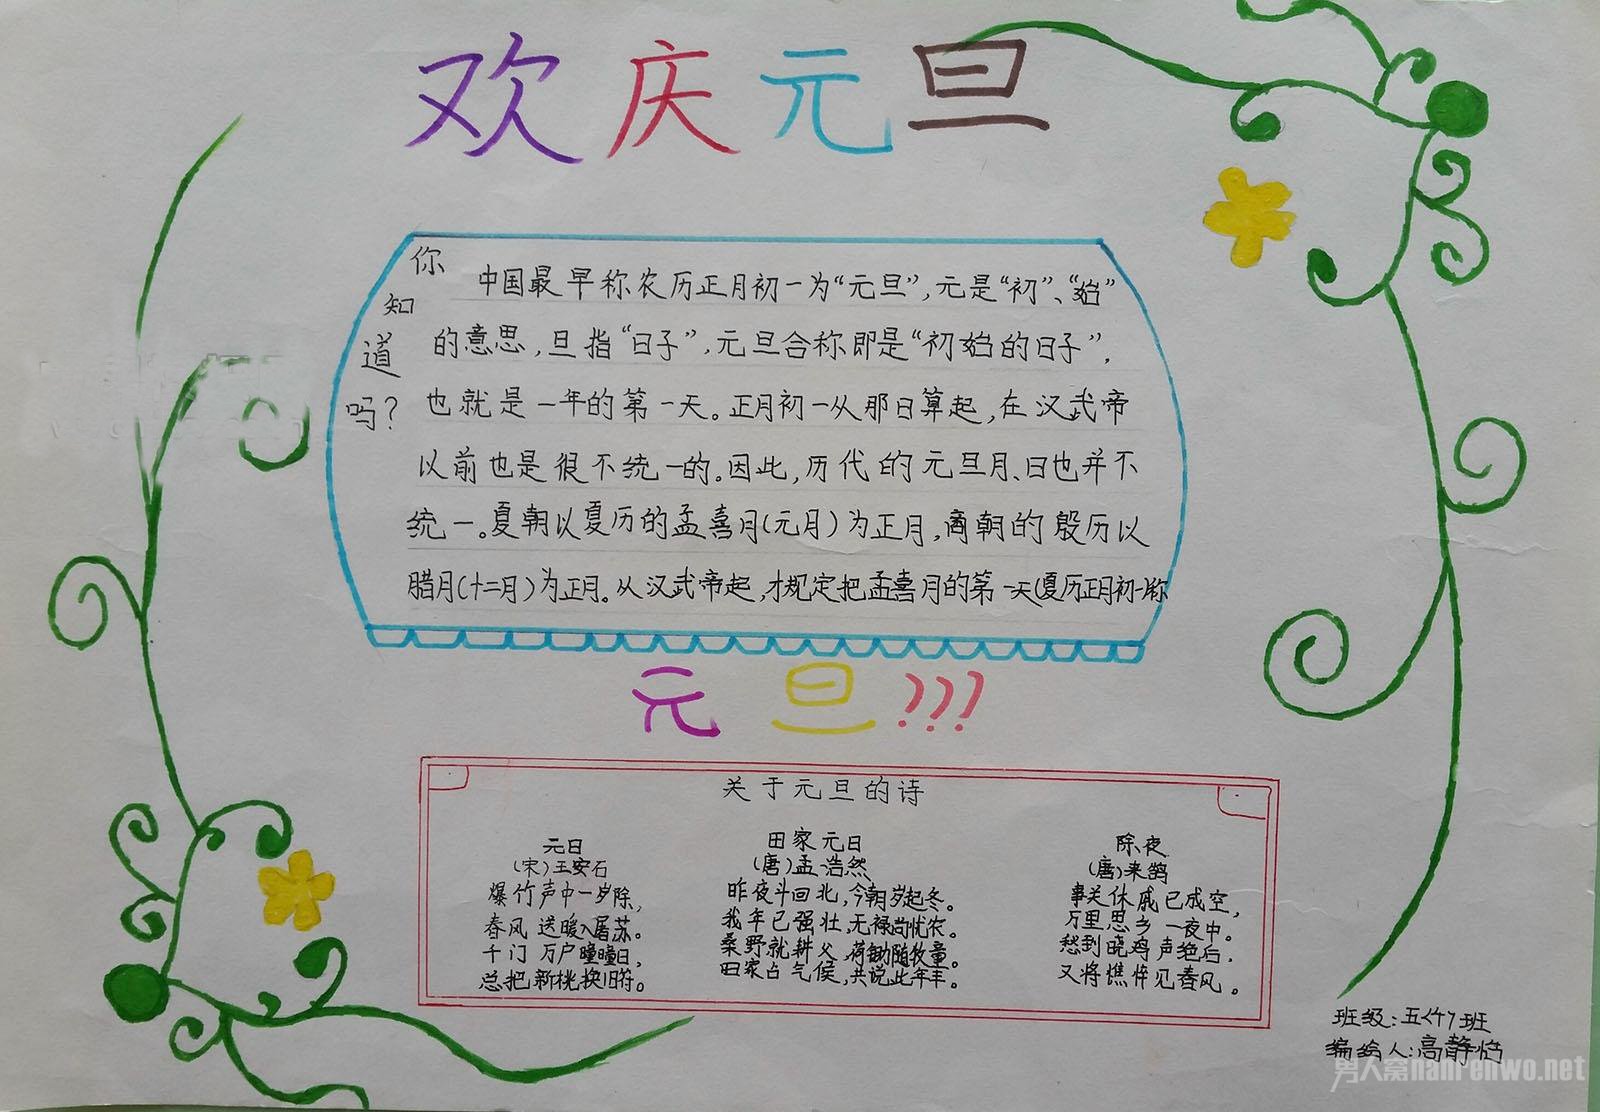 欢庆元旦
你知道吗?
中国最早称农历正月初一为“元旦”,元是“初”、“始”
的意思,旦指“日子”,元旦合称即是“初始的日子”,
也就是一年的第一天。正月初一从那日算起,在汉武帝
以前也是很不统一的。因此,历代的元旦月、日也并不
统一。夏朝以夏历的孟喜月(元月)为正月,商朝的殷历以
腊月(十二月)为正月。从汉武帝起,才规定把孟喜月的第一天(夏历正月初一)称
元旦???
关于元旦的诗
元日
(宋)王安石
爆竹声中一岁除,
春风送暖入屠苏。
千门万户曈曈日,
总把新桃换旧符。
田家元日
(唐)孟浩然
昨夜斗回北,今朝岁起冬。
我年已强壮,无禄尚忧农。
桑野就耕父,荷锄随牧童。
田家占气候,共说此年丰。
除夜
(唐)来鹄
事关休戚已成空,
万里思乡一夜中。
愁到晓鸡声绝后,
又将憔悴见春风。
班级:五班
编绘人:高静
男人窝nanrenwo.net